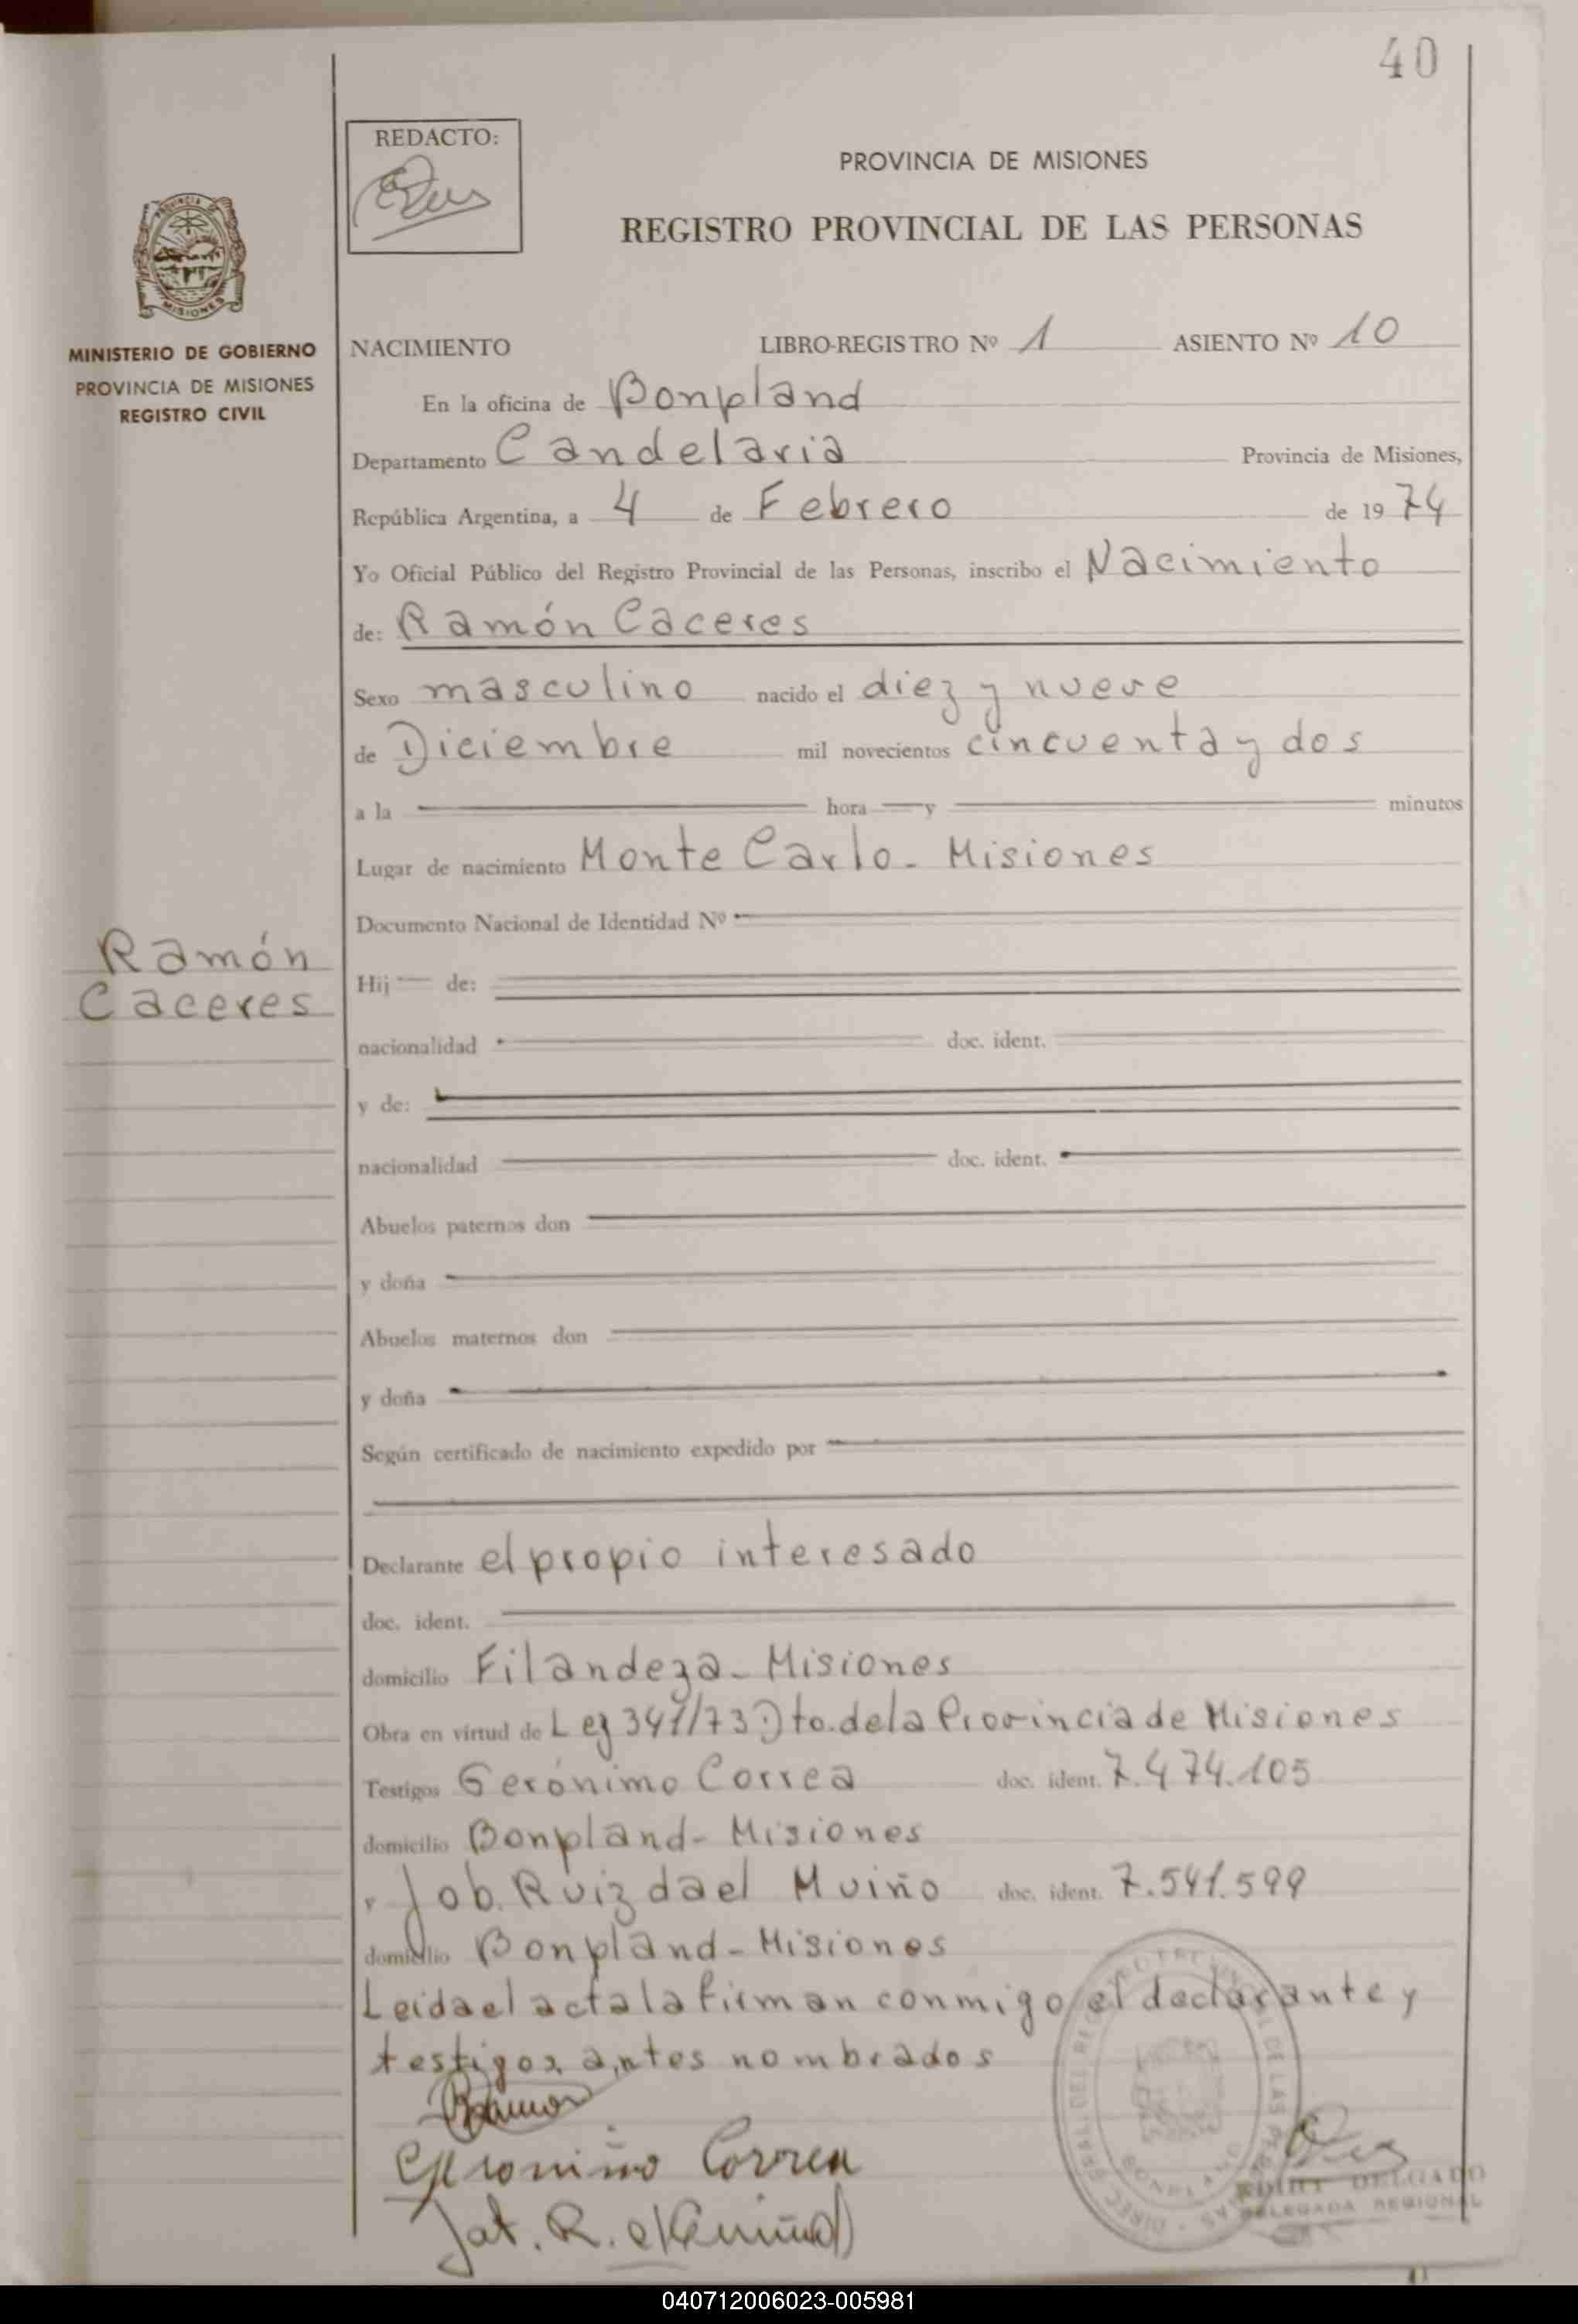 40
REDACTO:
PROVINCIA DE MISIONES
REGISTRO PROVINCIAL DE LAS PERSONAS
MINISTERIO DE GOBIERNO
PROVINCIA DE MISIONES
REGISTRO CIVIL
NACIMIENTO LIBRO-REGISTRO Nº 1 ASIENTO Nº 10
En la oficina de Bonpland
Departamento Candelaria Provincia de Misiones,
República Argentina, a 4 de Febrero de 1974
Yo Oficial Público del Registro Provincial de las Personas, inscribo el Nacimiento
de: Ramón Caceres
Sexo masculino nacido el diez y nueve
de Diciembre mil novecientos cincuenta y dos
a la hora y minutos
Lugar de nacimiento Monte Carlo - Misiones
Documento Nacional de Identidad Nº
Ramón
Caceres
Hij de:
nacionalidad doc. ident.
y de:
nacionalidad doc. ident.
Abuelos paternos don
y doña
Abuelos maternos don
y doña
Según certificado de nacimiento expedido por
Declarante el propio interesado
doc. ident.
domicilio Filandeza - Misiones
Obra en virtud de Ley 341/73 Dto. de la Provincia de Misiones
Testigos Gerónimo Correa doc. ident. 7.474.105
domicilio Bonpland - Misiones
y Job. Ruiz dael Muiño doc. ident. 7.541.599
domicilio Bonpland - Misiones
Leida el acta la firman conmigo el declarante y
testigos antes nombrados
Ramon
Geronimo Correa
DELGADO
DELEGADA REGIONAL
040712006023-005981